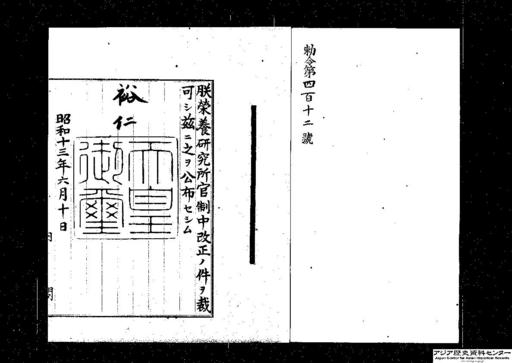 勅令第四百十二號
朕榮養硏究所官制中改正ノ件ヲ裁
可シ茲ニ之ヲ公布セシム
裕仁
天皇御璽
昭和十三年六月十日
内閣
アジア歴史資料センター
Japan Center for Asian Historical Records